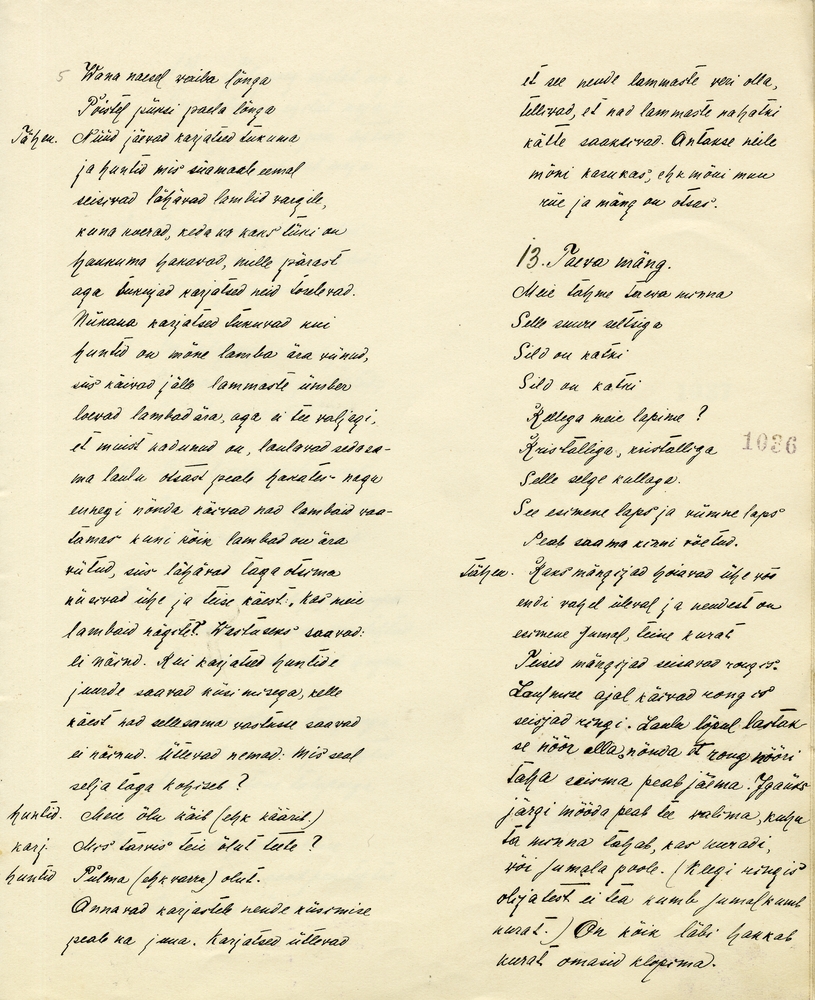 5 Wana naesel vaiba lõnga
Poistel püksi paela lõnga
Tähen. Nüüd jäevad karjatsed tukuma
ja huntid mis siiamaale eemal
seisivad lähävad lambid vargile,
kuna koerad, keda ka kaks tükki on
haukuma hakavad, mille pärast
aga tukujad karjatsed neid torelevad.
Niikaua karjatsed tukuvad kui
huntid on mõne lamba ära viinud,
siis käivad jälle lammaste ümber
loevad lambad ära, aga ei tee väljagi,
et muist kadunud on, laulavad sedasa-
ma laulu otsast peale hakates nagu
ennegi nõnda käivad nad lambaid vaa-
tamas kuni kõik lambad on ära
viitud, siis lähävad taga otsima
küsivad ühe ja teise käest: „Kas meie
lambaid nägite? Wastuseks saavad:
ei näind. Kui karjatsed huntide
juurde saavad küsimisega, kelle
käest nad sellesama vastuse saavad
ei näinud. Ütlevad nemad: Mis seal
selja taga kohiseb?
huntid. Meie õlu käib (ehk käärib.)
karj. Mis tarvis teie õlut teete?
huntid Pulma (ehk varru) olut.
Annavad karjastele nende küsimise
peale ka juua. Karjatsed ütlevad
et see nende lammaste veri olla,
tellivad, et nad lammaste nahatki
kätte saaksivad. Antakse neile
mõni kasukas, ehk mõni muu
riie ja mäng on otsas.
13. Taeva mäng.
Meie tahme taeva minna
Selle suure seltsiga
Sild on katki
Sild on katki
Kellega meie lapime?
Kristalliga, kristalliga
1036
Selle selge kullaga.
See esimene laps ja viimne laps
Peab saama kinni võetud.
Tähen. Kaks mängijad hoiavad ühe vöö
endi vahel üleval ja nendest on
esimene Jumal, teine kurat
Teised mängijad seisavad rongis.
Laulmise ajal käivad rongis
seisjad ringi. Laulu lõpul lastak-
se nöör alla, nõnda et rong nööri
taha seisma peab jäema. Igaüks
järgi mööda peab tee valima, kuhu
ta minna tahab, kas kuradi,
või Jumala poole. (Keegi ringis
olijatest ei tea kumb Jumal kumb
kurat.) On kõik läbi hakkab
kurat omasid klopima.